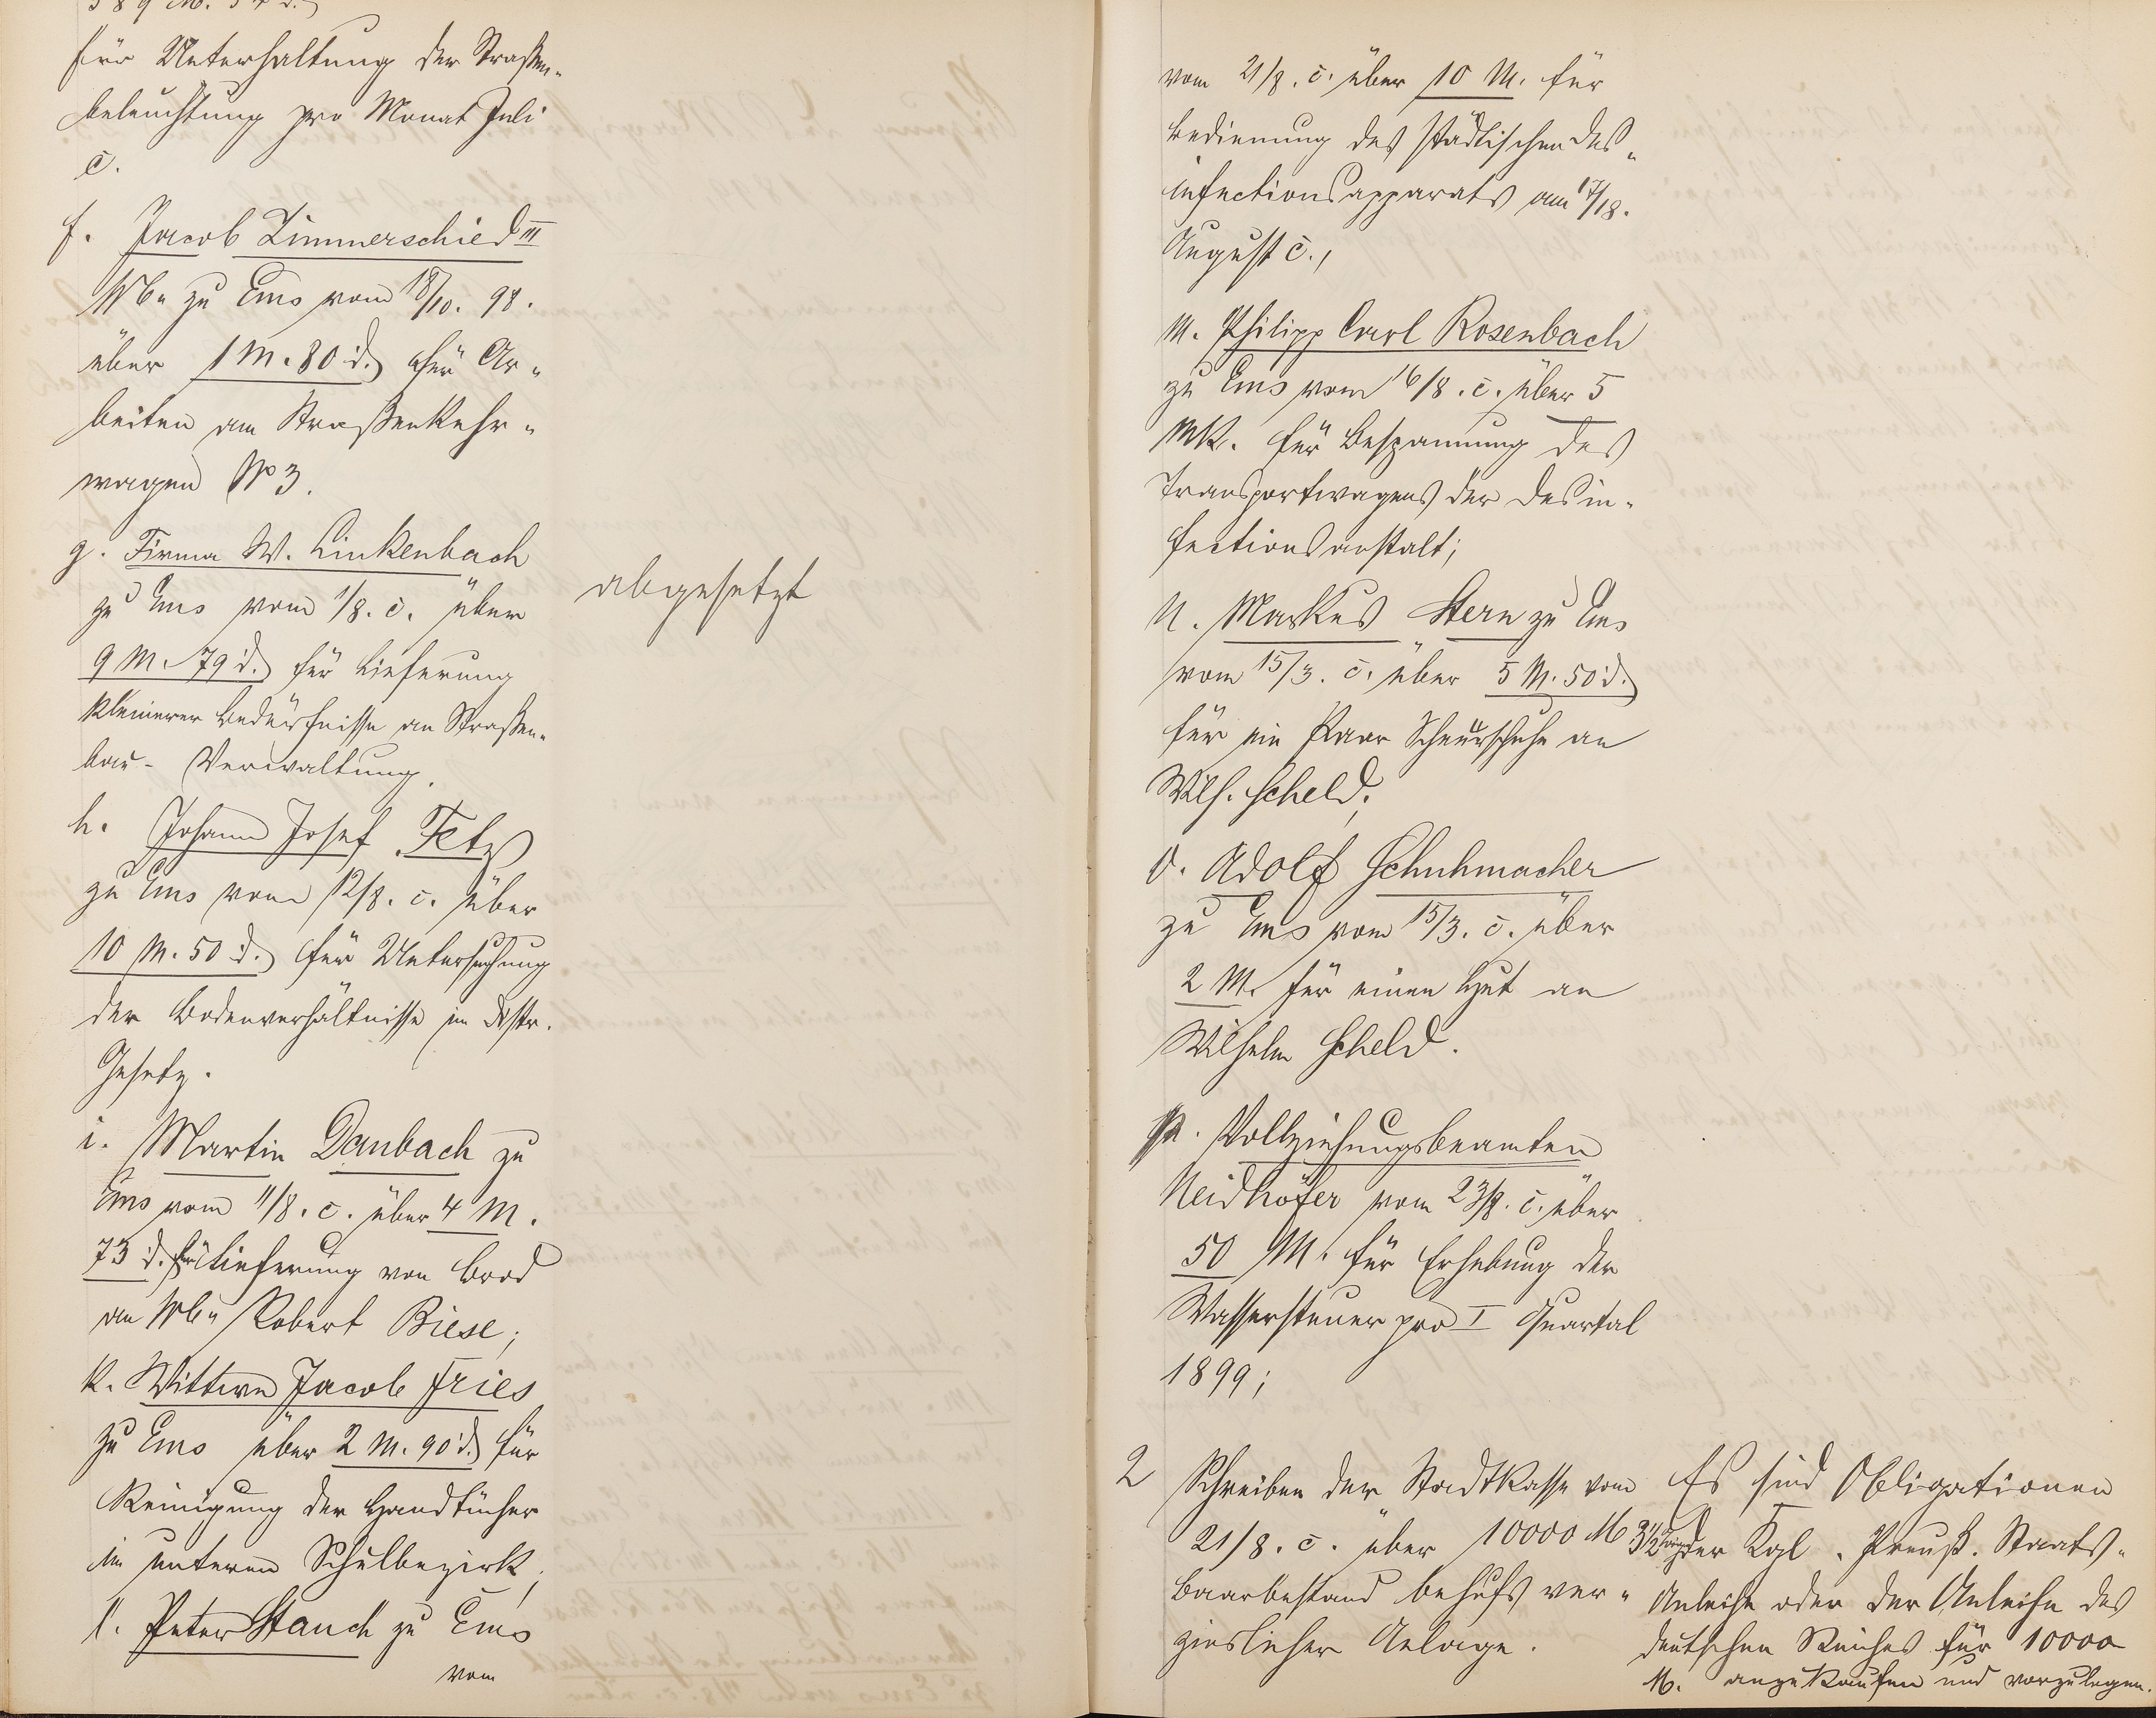 für Unterhaltung der Straßen-
beleuchtung pro Monat Juli
c.
f. Jacob Zimmerschied III
Wb. zu Ems vom 18/10. 98.
über 1 M. 80 d. für Ar-
beiten am Straßenkehr-
wagen No 3.
g. Firma W. Linkenbach
zu Ems vom 1/8. c. über
9 M. 79 d. für Lieferung
kleinerer Bedürfnisse an Straßen-
bau-Verwaltung.
abgesetzt
h. Johann Josef Fetz
zu Ems vom 12/8. c. über
10 M. 50 d. für Untersuchung
der Bodenverhältnisse im Distr.
Gesetz.
i. Martin Daubach zu
Ems vom 11/8. c. über 4 M.
73 d. für Lieferung von Brod
an Wb. Robert Biese;
k. Wittwe Jacob Fries
zu Ems über 2 M. 90 d. für
Reinigung der Handtücher
im unteren Schulbezirk;
l. Peter Stauch zu Ems
vom
vom 21/8. c. über 10 M. für
Bedienung des städtischen Des-
infectionsapparats am 17/18.
August c.,
m. Philipp Carl Rosenbach
zu Ems vom 16/8. c. über 5
Mk. für Bespannung des
Transportwagens der Desin-
fectionsanstalt;
n. Markus Stern zu Ems
vom 15/3. c. über 5 M. 50 d.
für ein Paar Schnürschuhe an
Wilh. Scheld;
o. Adolf Schuhmacher
zu Ems vom 15/3. c. über
2 M. für einen Hut an
Wilhelm Scheld.
p. Vollziehungsbeamten
Neidhöfer vom 23/8. c. über
50 M. für Erhebung der
Wassersteuer pro I Quartal
1899;
2 Schreiben der Stadtkasse vom
21/8. c. über 10000 M
Baarbestand behufs ver-
zinslicher Anlage.
Es sind Obligationen
3 1/2 der Kgl. Preuß. Staats-
Anleihe oder der Anleihe des
deutschen Reiches für 10000
M. anzukaufen und vorzulegen.